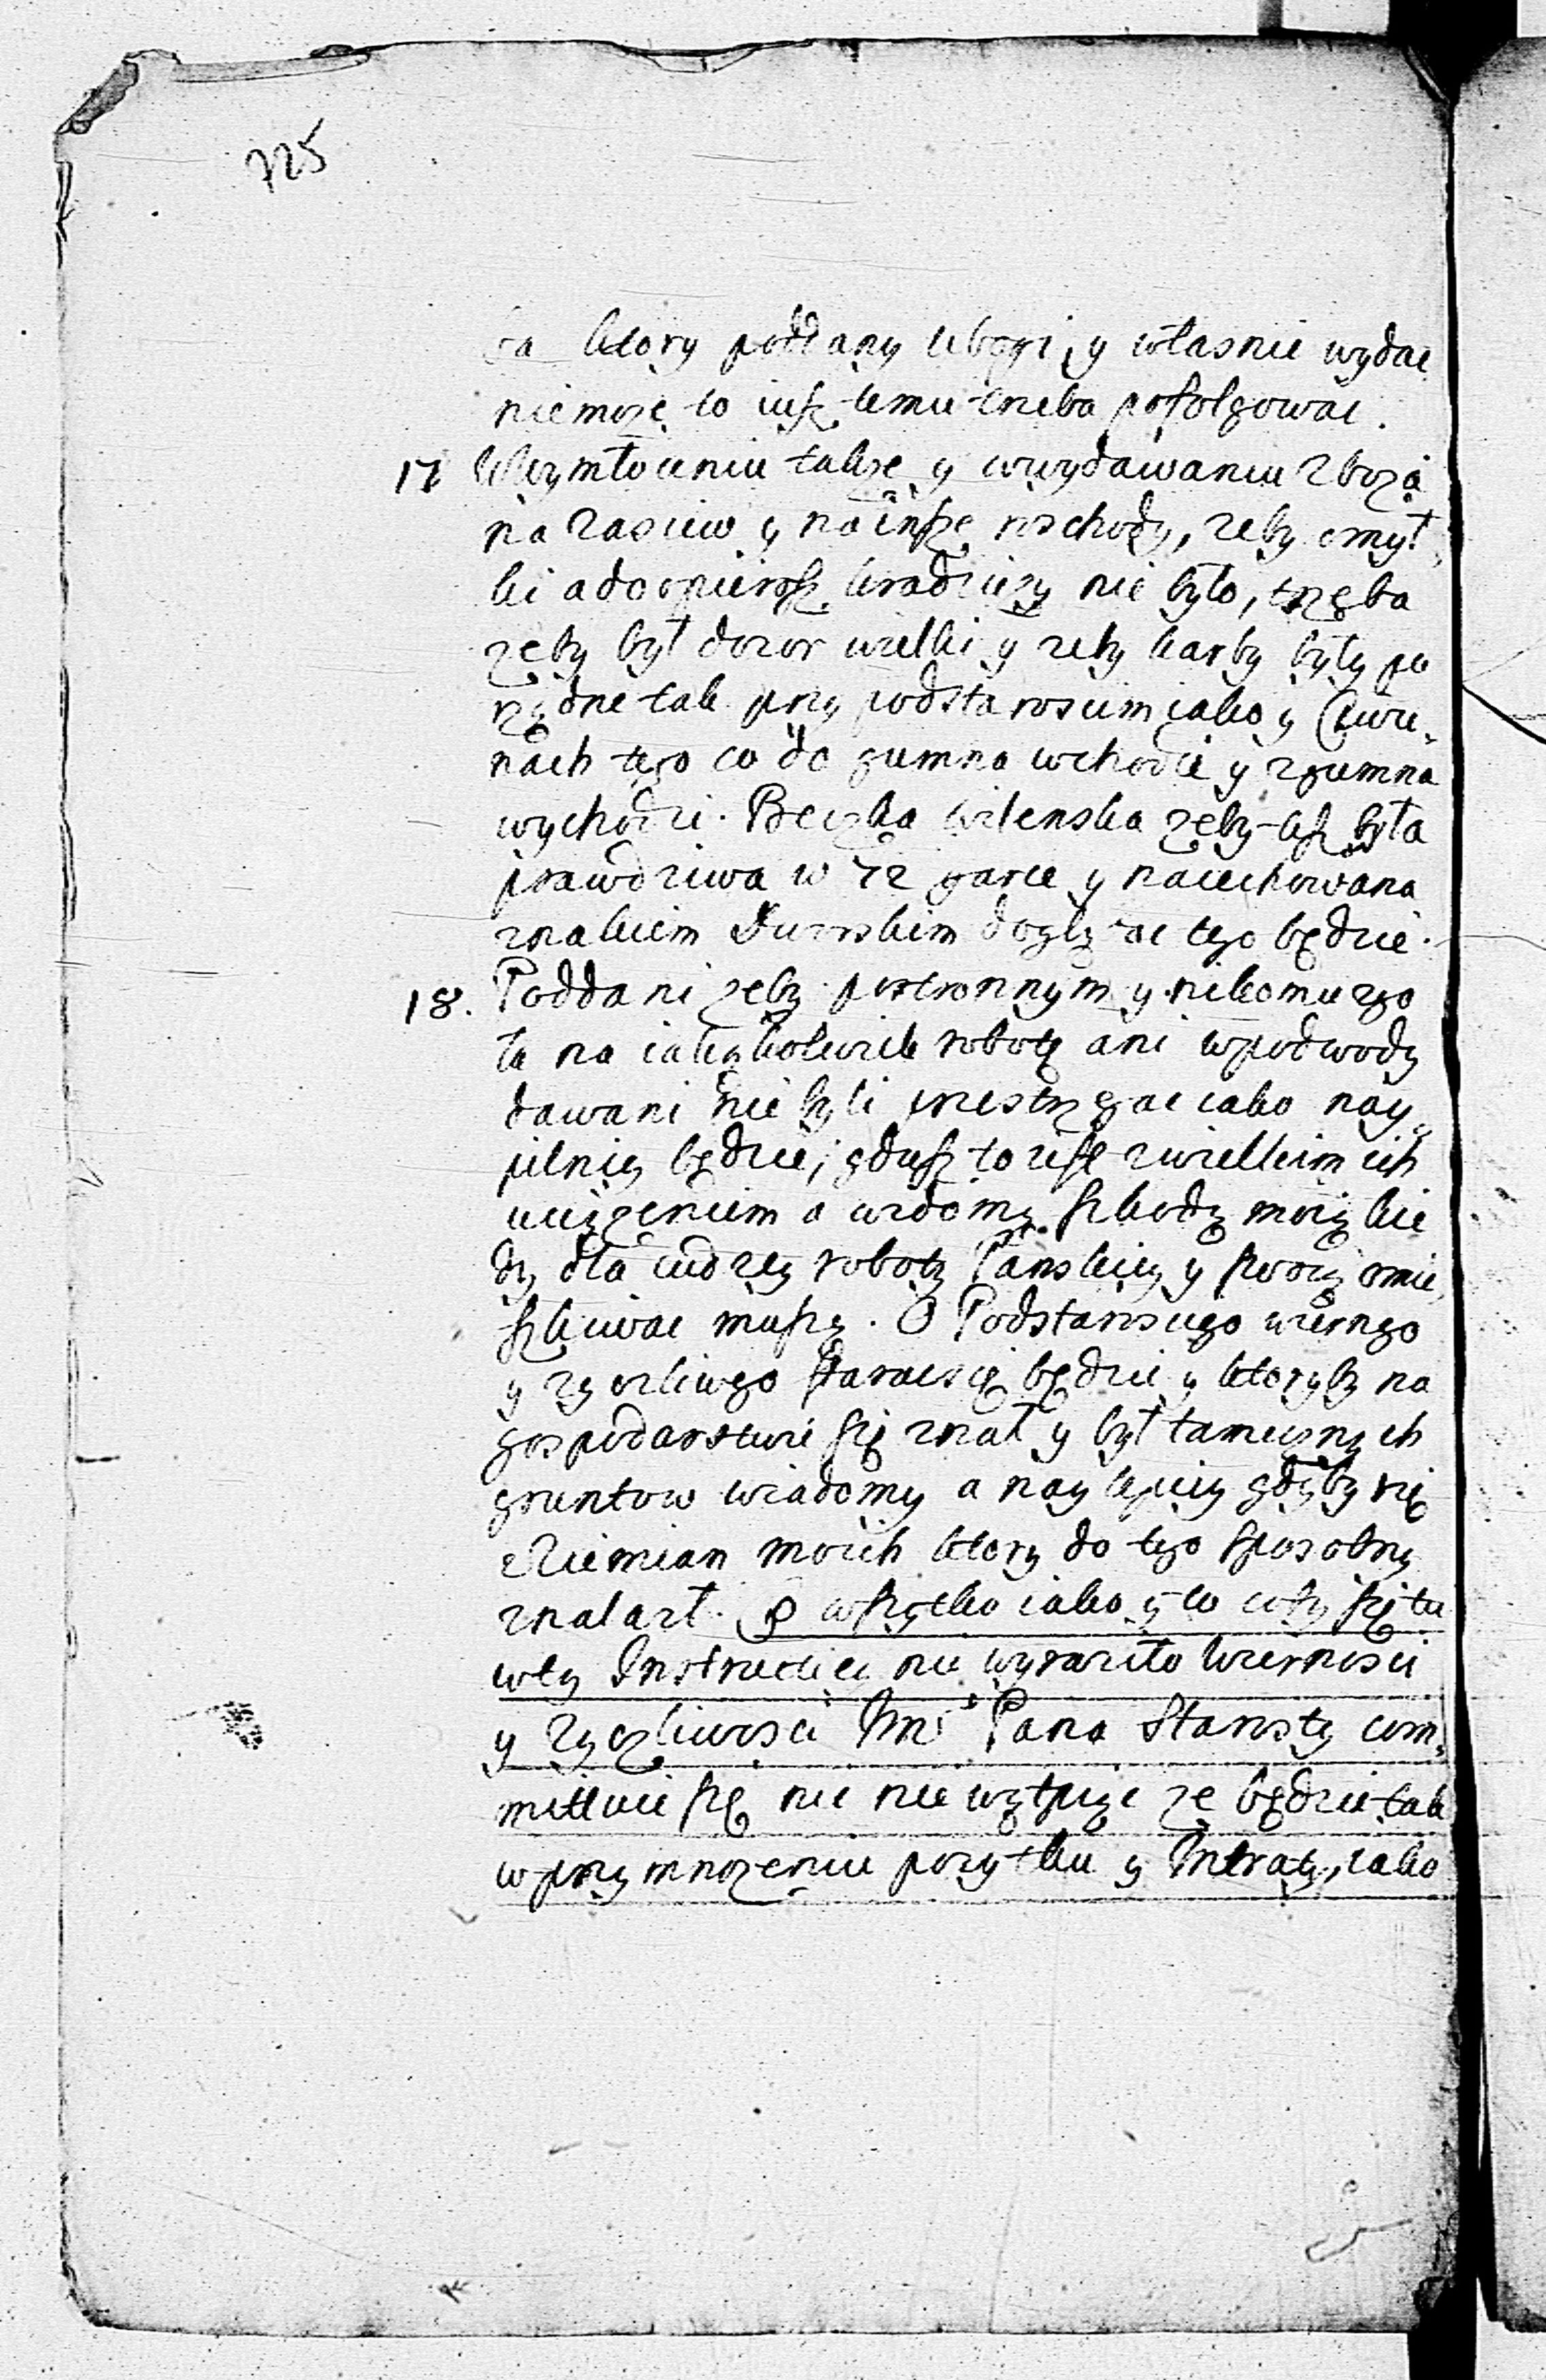 725
ktory poddany ubogi, y własnie wydac
niemoze to iusz temu trzeba pofolgowac.
17 W wymłoceniu takze y wwydawaniu zboza
na zasiew y na insze roschody, zeby omył
ki a doopierosz kradziezy nie było, trzeba
zeby był dozor wielki y zeby karby były po
rządne tak przy podstaroscim iako y Ciwu,
nach tego co do gumna wchodzi y zgumna
wychodzi. Beczka wilenska zeby tesz była
prawdziwa w 72 garce y nacechowana
znakiem dogląndac tego będzie.
18. Poddani zeby postronnym y nikomu zgo
ła na iakąkolwiek robotę ani wpodwody
dawani nie byli przestrzegac iako nay,
pilniey będzie, gdysz to iest zwielkim ich
uciązeniem a widomą szkodą moią kie
dy dla cudzey roboty Panskiey y swoiey omie,
szkiwac muszą. O Podstarosciego wiernego
y zyczliwego staracsię będzie y ktoryby na
gospodarstwie się znał y był tamecznych
gruntow wiadomy a naylepiey gdyby się
zZiemian moich ktory do tego sposobny
znalazł. wszystko iako y to coby się tu
wtey Instructiey nie wyraziło wiernosci
y zyczliwosci Pana Starosty com,
mittuie się nic nie wątpiąc ze będzie tak
wprzymnozeniu pozytku y Intraty, iako